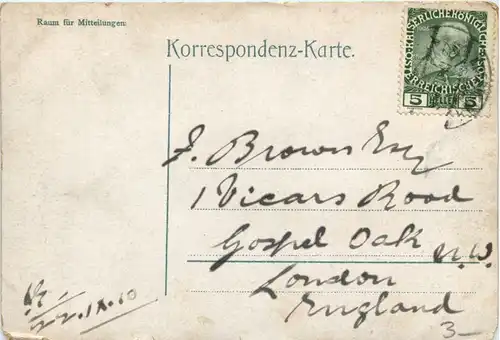 Raum für Mitteilungen:
Korrespondenz-Karte.
KAISERLICHE KÖNIGLICHE
ÖSTERREICHISCHE POST
5 HELLER 5
J. Brown Esq
1 Vicars Road
Gospel Oak N.W.
London
England
22.IX.10
3-